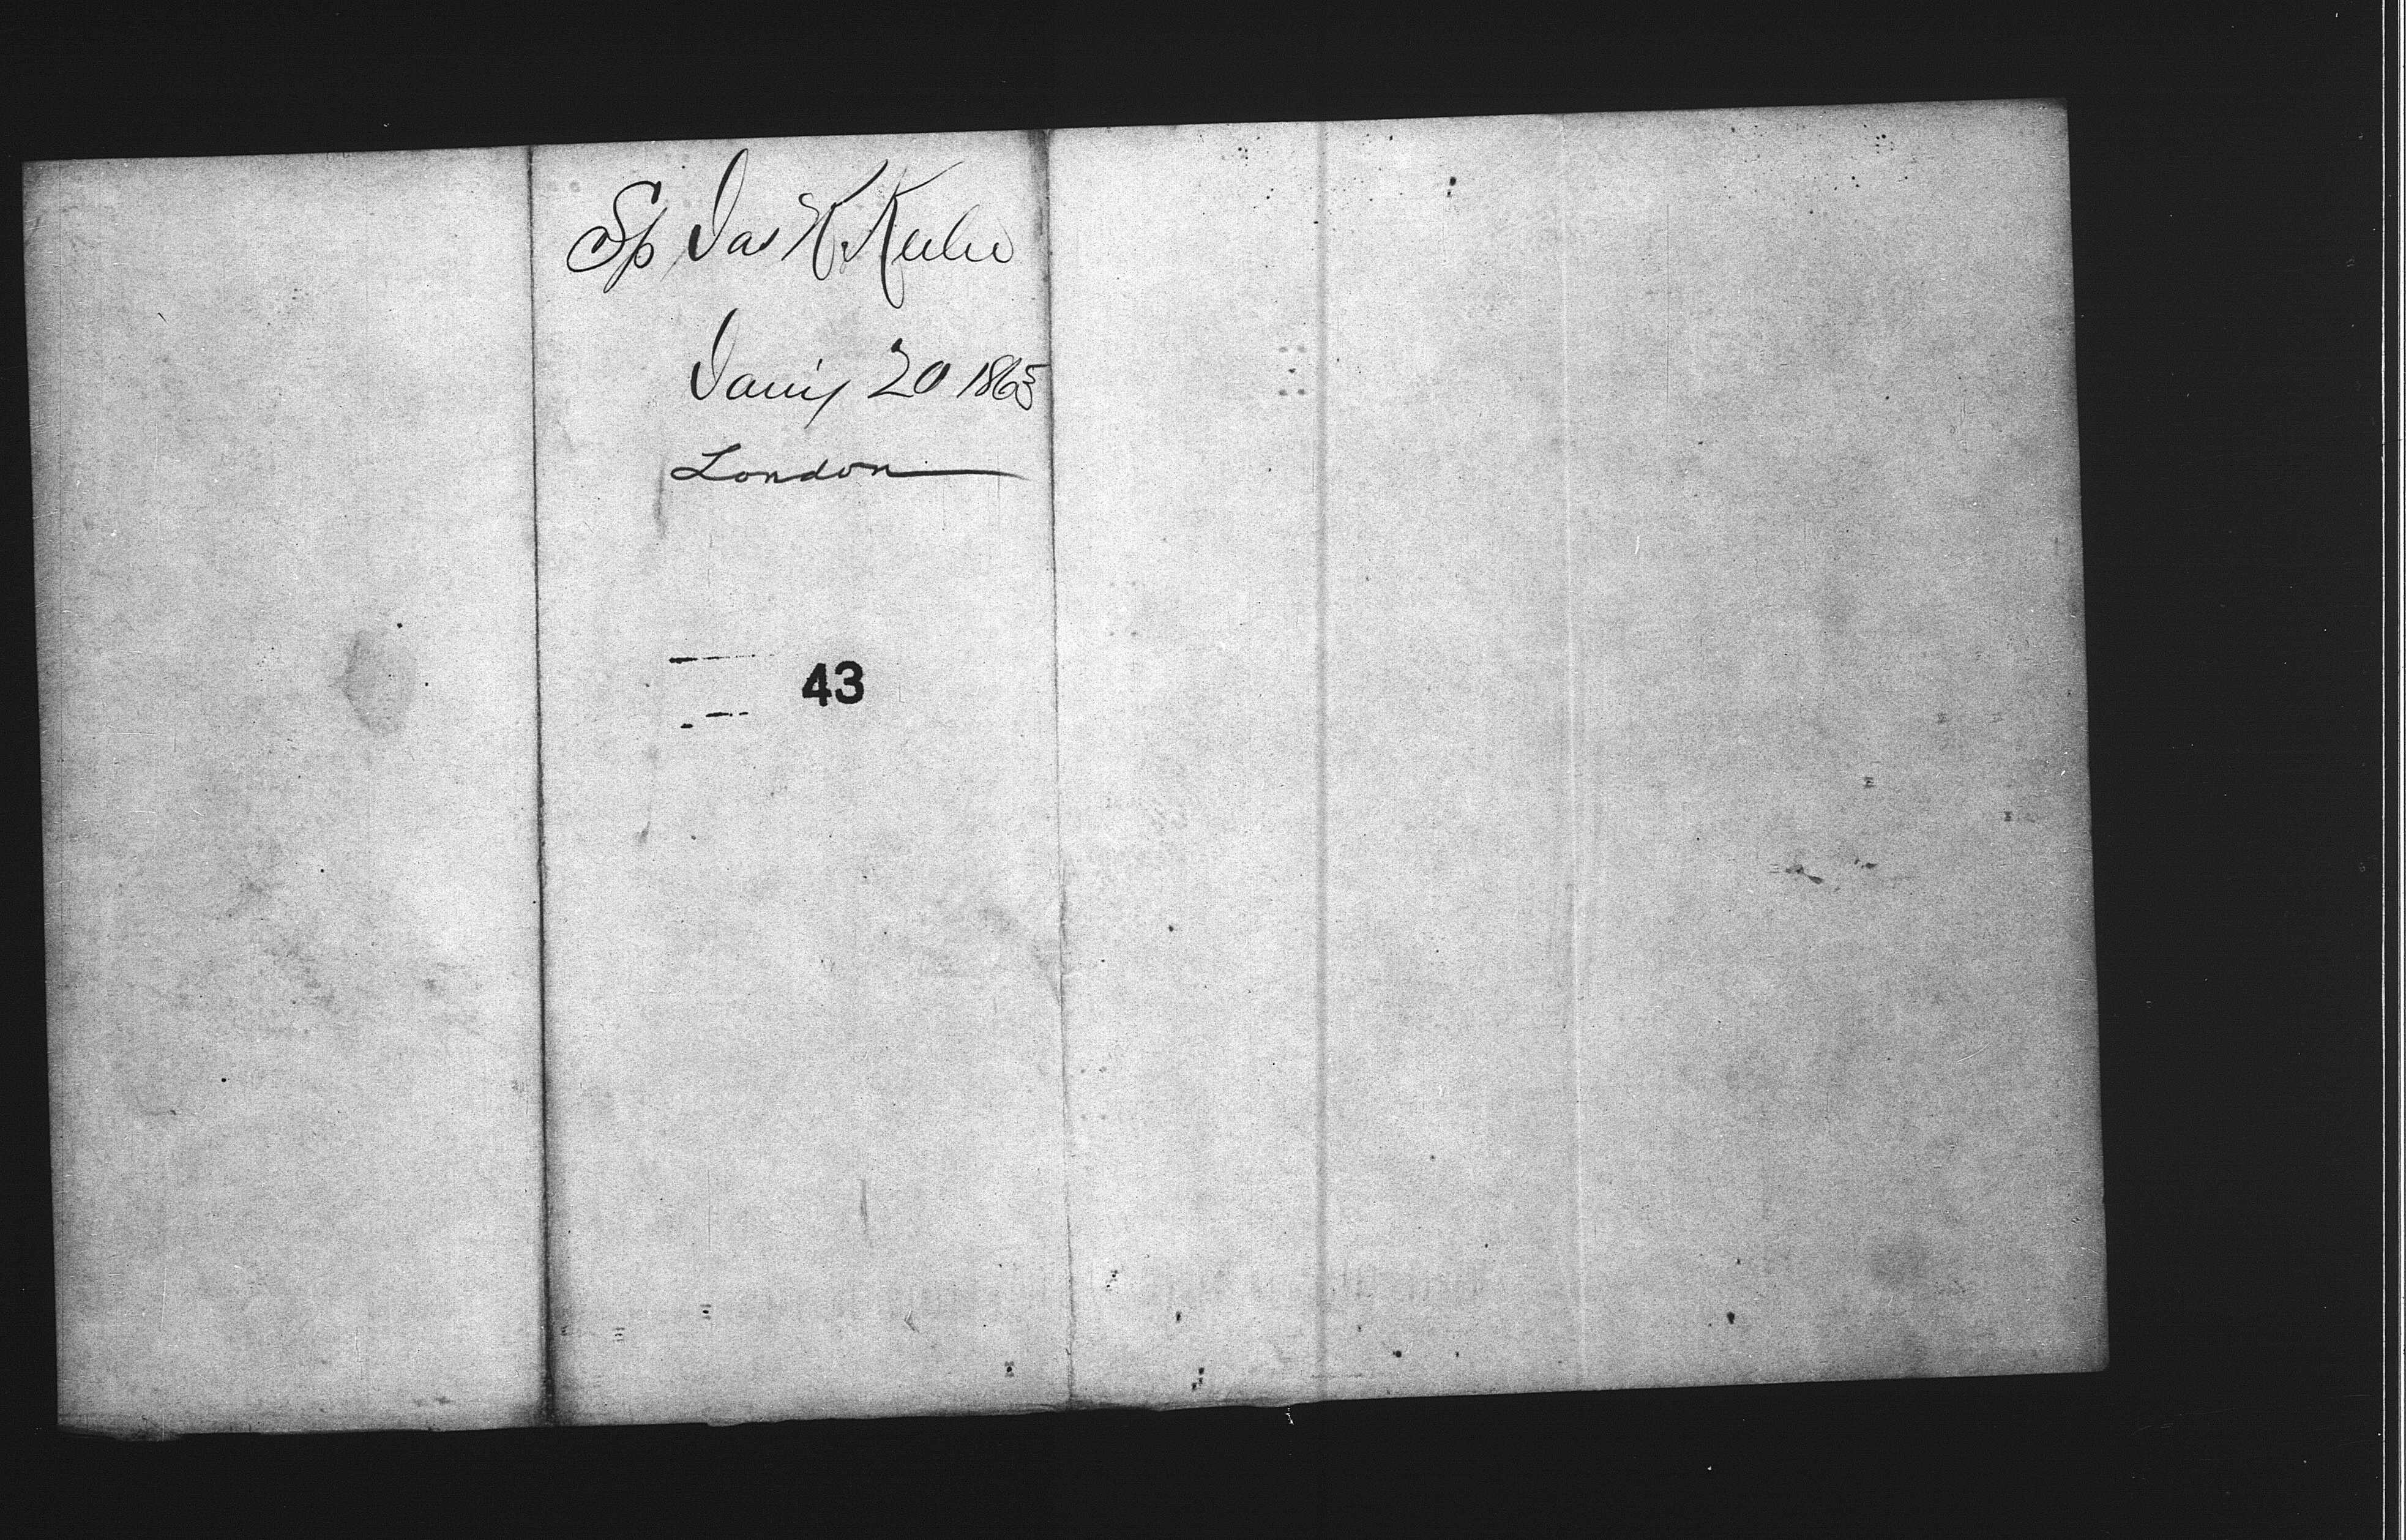 Sp Jas K Keelie
Jan'y 20 1865
London
43